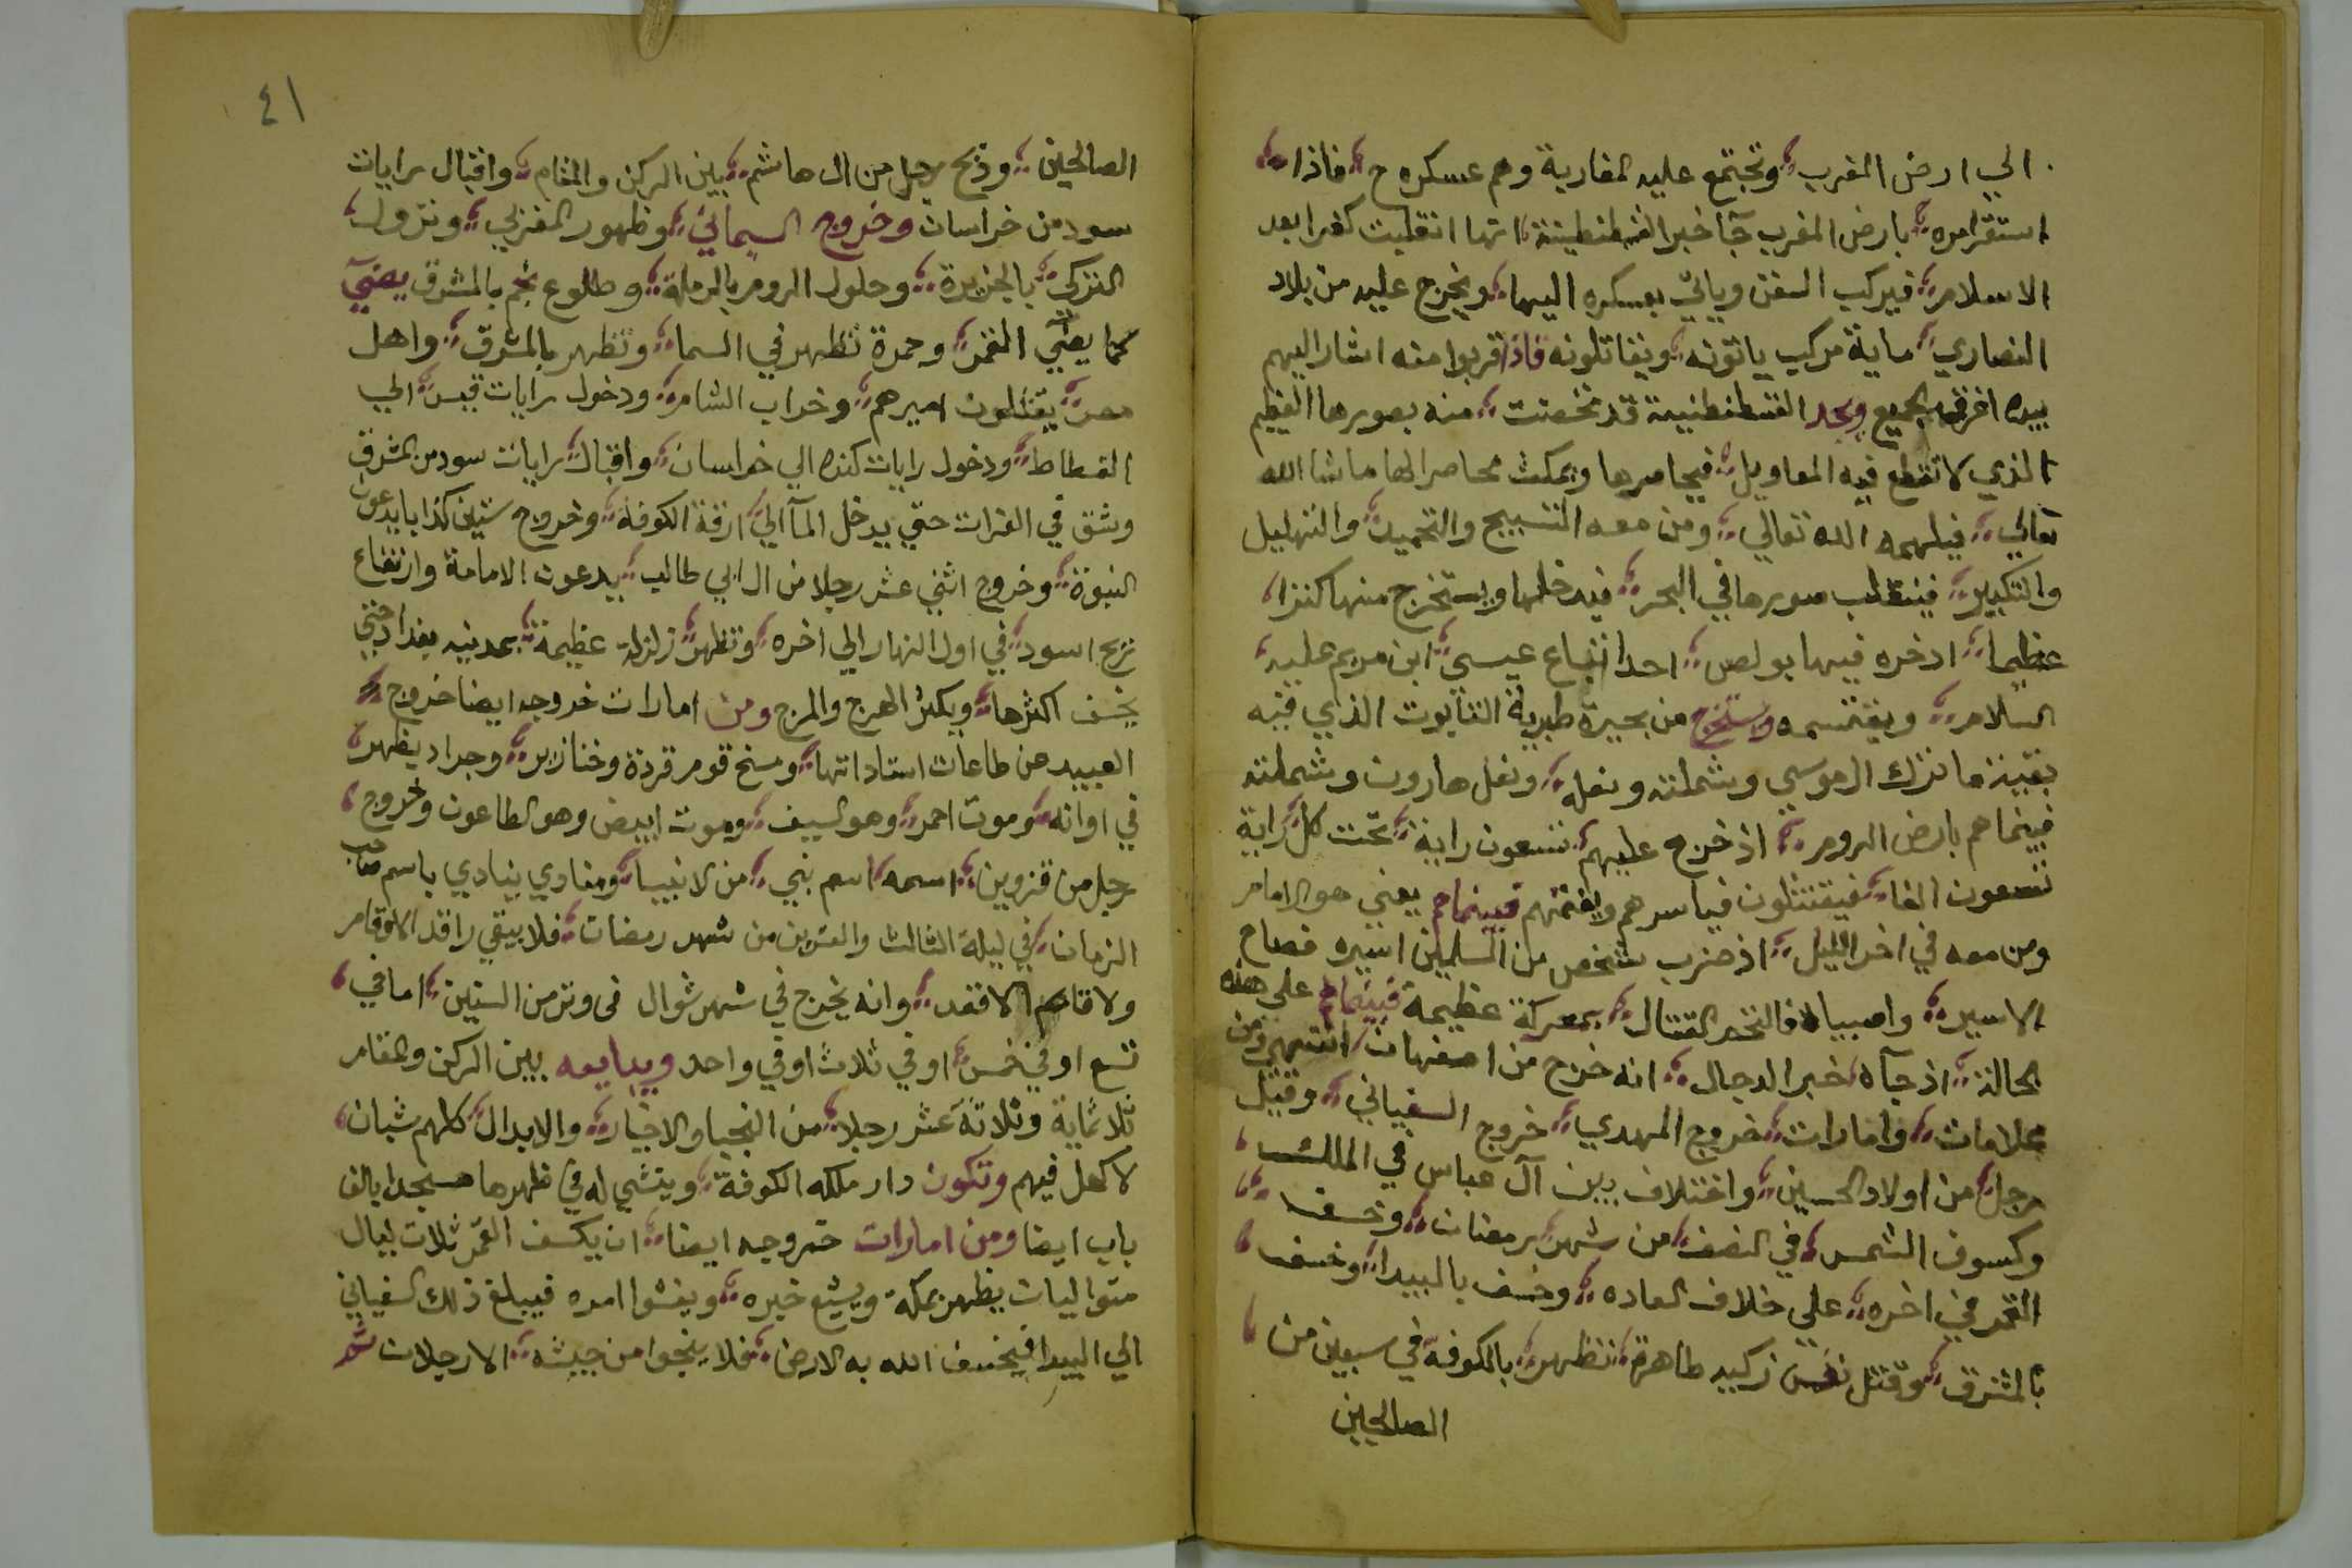 الي ارض المغرب وتجتمع عليه المغاربة وهم عسكره ح فاذا
استقر امره بارض المغرب جآ خبر القسطنطينة انها انقلبت كفرا بعد
الاسلام فيركب السفن وياتي بعسكره اليها ويخرج عليه من بلاد
النصاري ماية مركب ياتونه ويقاتلونه فاذا قربوا منه اشار اليهم
بيده اغرقهم الجميع ويجد القسطنطنيية قد تحصنت منه بصورها العظيم
الذي لا تقطع فيه المعاويل فيحاصرها ويمكث محاصرا لها ما شا الله
تعالي فيلهمه الله تعالي ومن معه التسبيح والتحميد والتهليل
والتكبير فينقلب صورها في البحر فيدخلها ويستخرج منها كنزا
عظيما ادخره فيها بولص احد اتباع عيسى ابن مريم عليه
السلام ويقتسمه ويستخرج من بحيرة طبرية التابوت الذي فيه
بقية ما ترك ال موسي وشملته ونعله ونعل هارون وشملته
فبينما هم بارض الروم اذ خرج عليهم تسعون راية تحت كل راية
تسعون الفا فيقتتلون فياسرهم ويغنمهم فبينما هم يعني هو الامام
ومن معه في اخر الليل اذ ضرب شخص من المسلمين اسيره فصاح
الاسير واصيباه فالتحم القتال بمعركة عظيمة فبينما هم علي هذه
الحالة اذ جآه خبر الدجال انه خرج من اصفهان انتهي ومن
علامات وامارات خروج المهدي خروج السفياني وقتل
رجل من اولاد الحسين واختلاف بين آل عباس في الملك
وكسوف الشمس في النصف من شهر رمضان وخسف
القمر في اخره علي خلاف العاده وخسف بالبيدا وخسف
بالمشرق وقتل نفس زكيه طاهرة تظهر بالكوفة في سبعين من
الصالحين
٤١
الصالحين وذبح رجل من ال هاشم بين الركن والمقام واقبال رايات
سود من خراسان وخروج اليماني وظهور المغربي ونزول
التركي بالجزيرة وحلول الروم بالرملة وطلوع نجم بالمشرق يضيء
كما يضيء القمر وحمرة تظهر في السما وتظهر بالمشرق واهل
مصر يقتلون اميرهم وخراب الشام ودخول رايات قيس الي
الفسطاط ودخول رايات كنده الي خراسان واقبال رايات سود من المشرق
وشق في الفرات حتي يدخل المآ الي ازقة الكوفة وخروج ستين كذابا يدعون
النبوة وخروج اثني عشر رجلا من ال ابي طالب يدعون الامامة وارتفاع
ريح اسود في اول النهار الي اخره وتظهر زلزلة عظيمة بمدينه بغداد حتي
يخسف اكثرها ويكثر الهرج والمرج ومن امارات خروجه ايضا خروج
العبيد عن طاعات استاداتها ومسخ قوم قردة وخنازير وجراد يظهر
في اوانه وموت احمر وهو السيف وموت ابيض وهو الطاعون وخروج
رجل من قزوين اسمه اسم نبي من الانبيا ومنادي ينادي باسم صاحب
الزمان في ليلة الثالث والعشرين من شهر رمضان فلا يبقي راقد الا وقام
ولا قائم الا قعد وانه يخرج في شهر شوال في وتر من السنين اما في
تسع او في خمس او في ثلاث او في واحد ويبايعه بين الركن والمقام
ثلاثماية وثلاثة عشر رجلا من النجبا والاخيار والابدال كلهم شبان
لا كهل فيهم وتكون دار ملكه الكوفة وينشي له في ظهرها مسجدا بالف
باب ايضا ومن امارات خروجه ايضا ان يكسف القمر ثلاث ليال
متواليات يظهر بمكة ويشيع خبره ويفشوا امره فيبلغ ذلك السفياني
الي البيدا فيخسف الله به الارض فلا ينجوا من جيشه الا رجلان